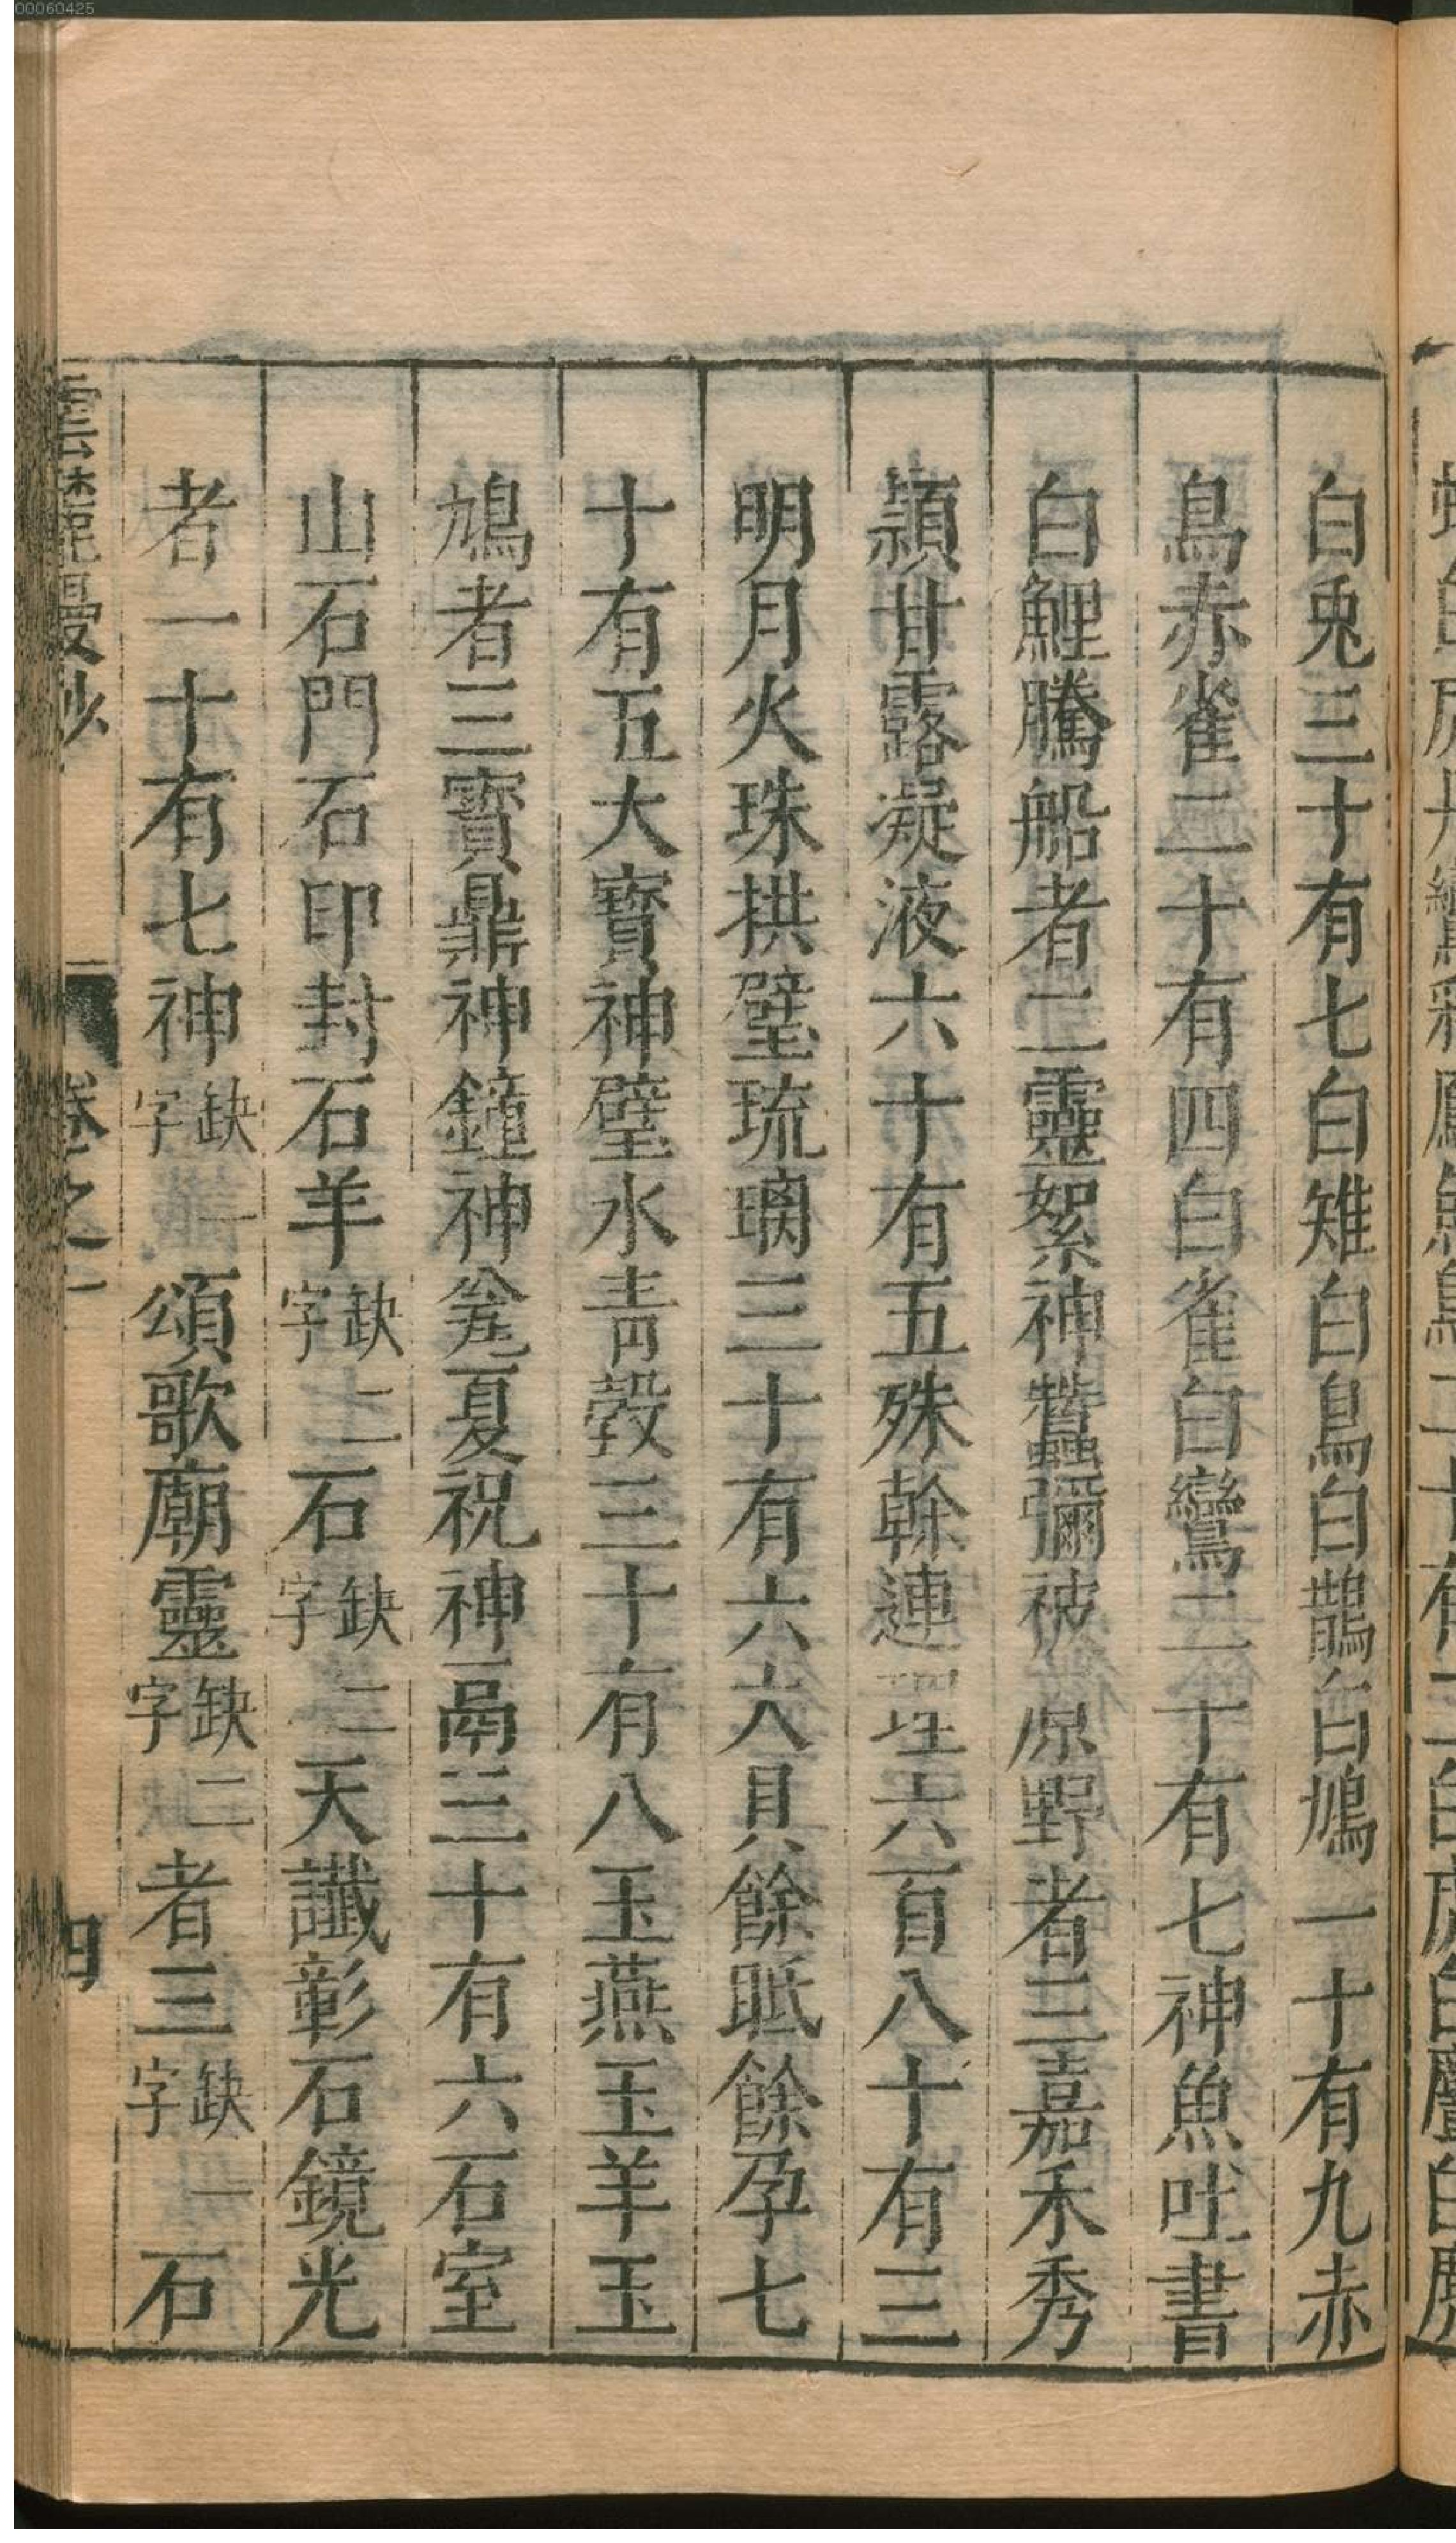 00060425
白兎三十有七白雉白鳥白鵲白鳩一十有九赤
鳥赤雀二十有四白雀白鸞二十有七神魚吐書
白鯉騰船者二靈絮神蠶彌被原野者三嘉禾秀
穎甘露凝液六十有五殊幹連理六百八十有三
明月火珠拱璧琉璃三十有六大貝餘眡餘孕七
十有五大寶神璧水青瑴三十有八玉燕玉羊玉
鳩者三寶鼎神鐘神夏祝神鬲三十有六石室
山石門石印封石羊缺二字石缺二字天讖彰石鏡光
者一十有七神缺一字頌歌廟靈缺二字者三缺一字石
雲麓漫抄
卷之
四